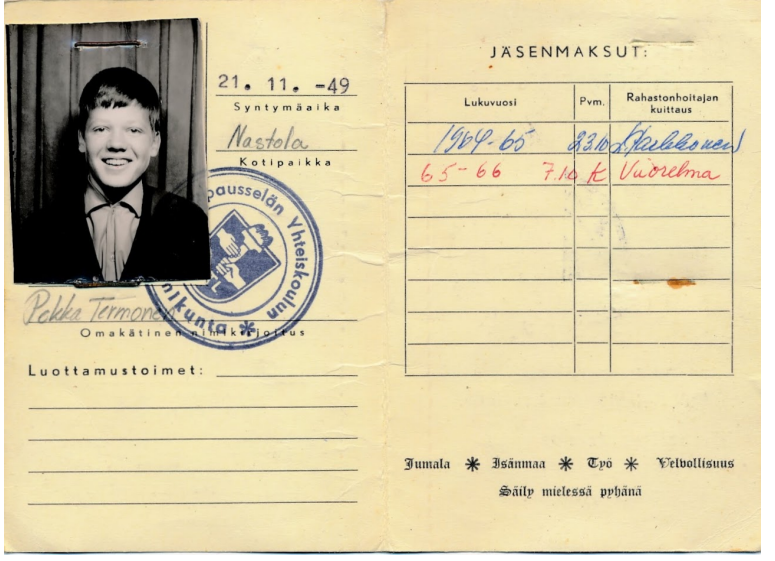 21. 11. -49
Syntymäaika
Nastola
Kotipaikka
pausselän Yhteiskoulun
nikunta *
Pekka Termonen
Omakätinen nimikirjoitus
Luottamustoimet:
JÄSENMAKSUT:
Lukuvuosi Pvm. Rahastonhoitajan kuittaus
1964-65 23.10
65-66 7.10 K Vuorelma
Jumala * Isänmaa * Työ * Velvollisuus
Säily mielessä pyhänä